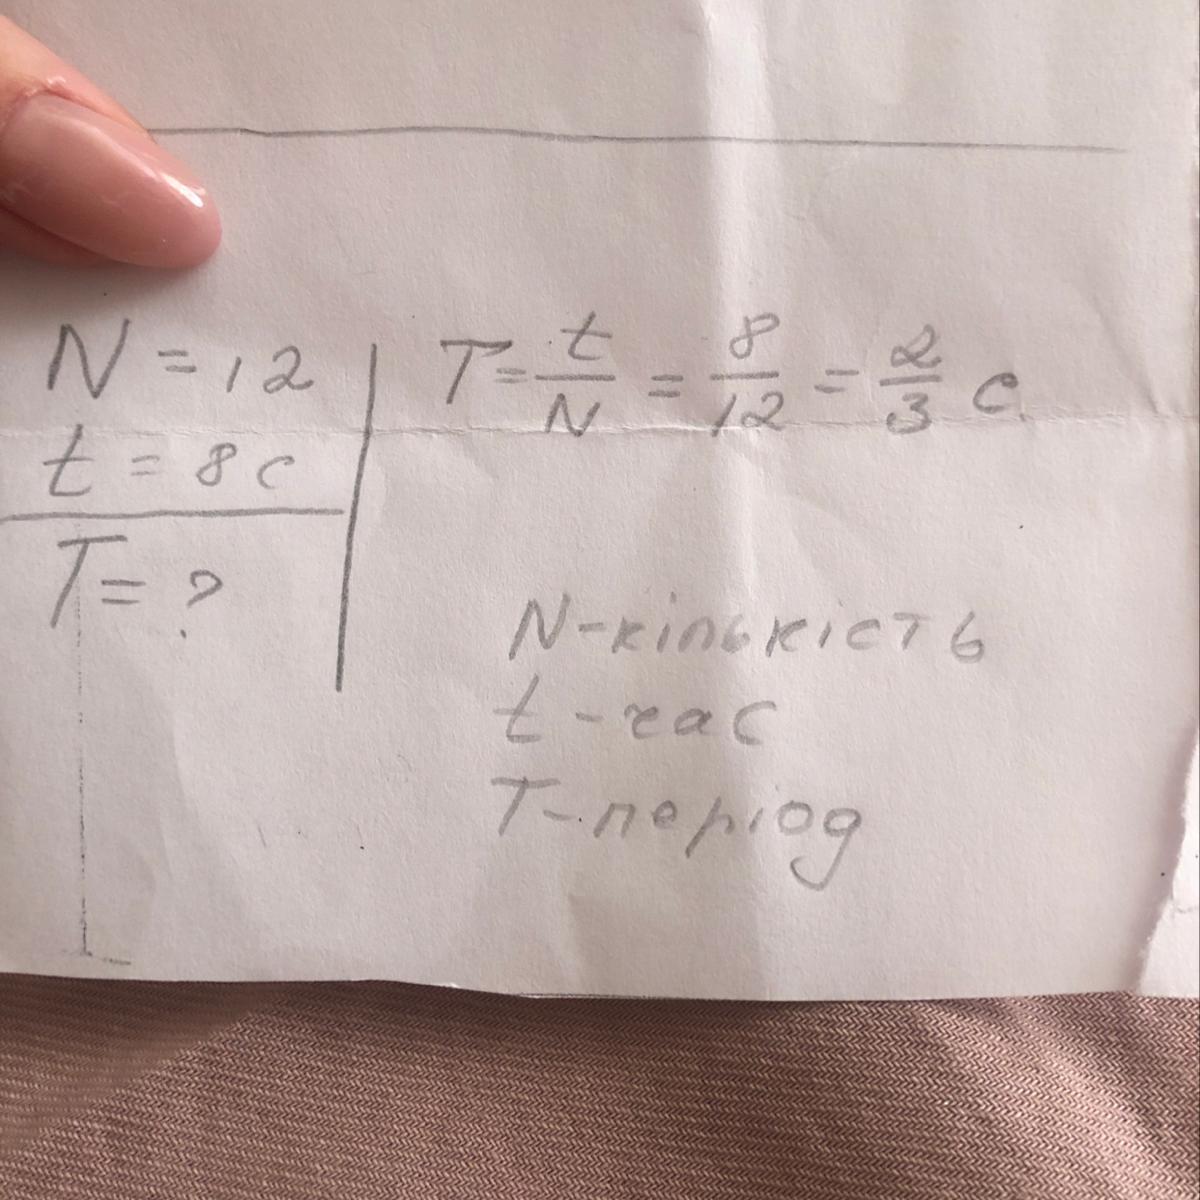 N = 12
t = 8 c
T = ?
T = t/N = 8/12 = 2/3 c.
N - кількість
t - час
T - період